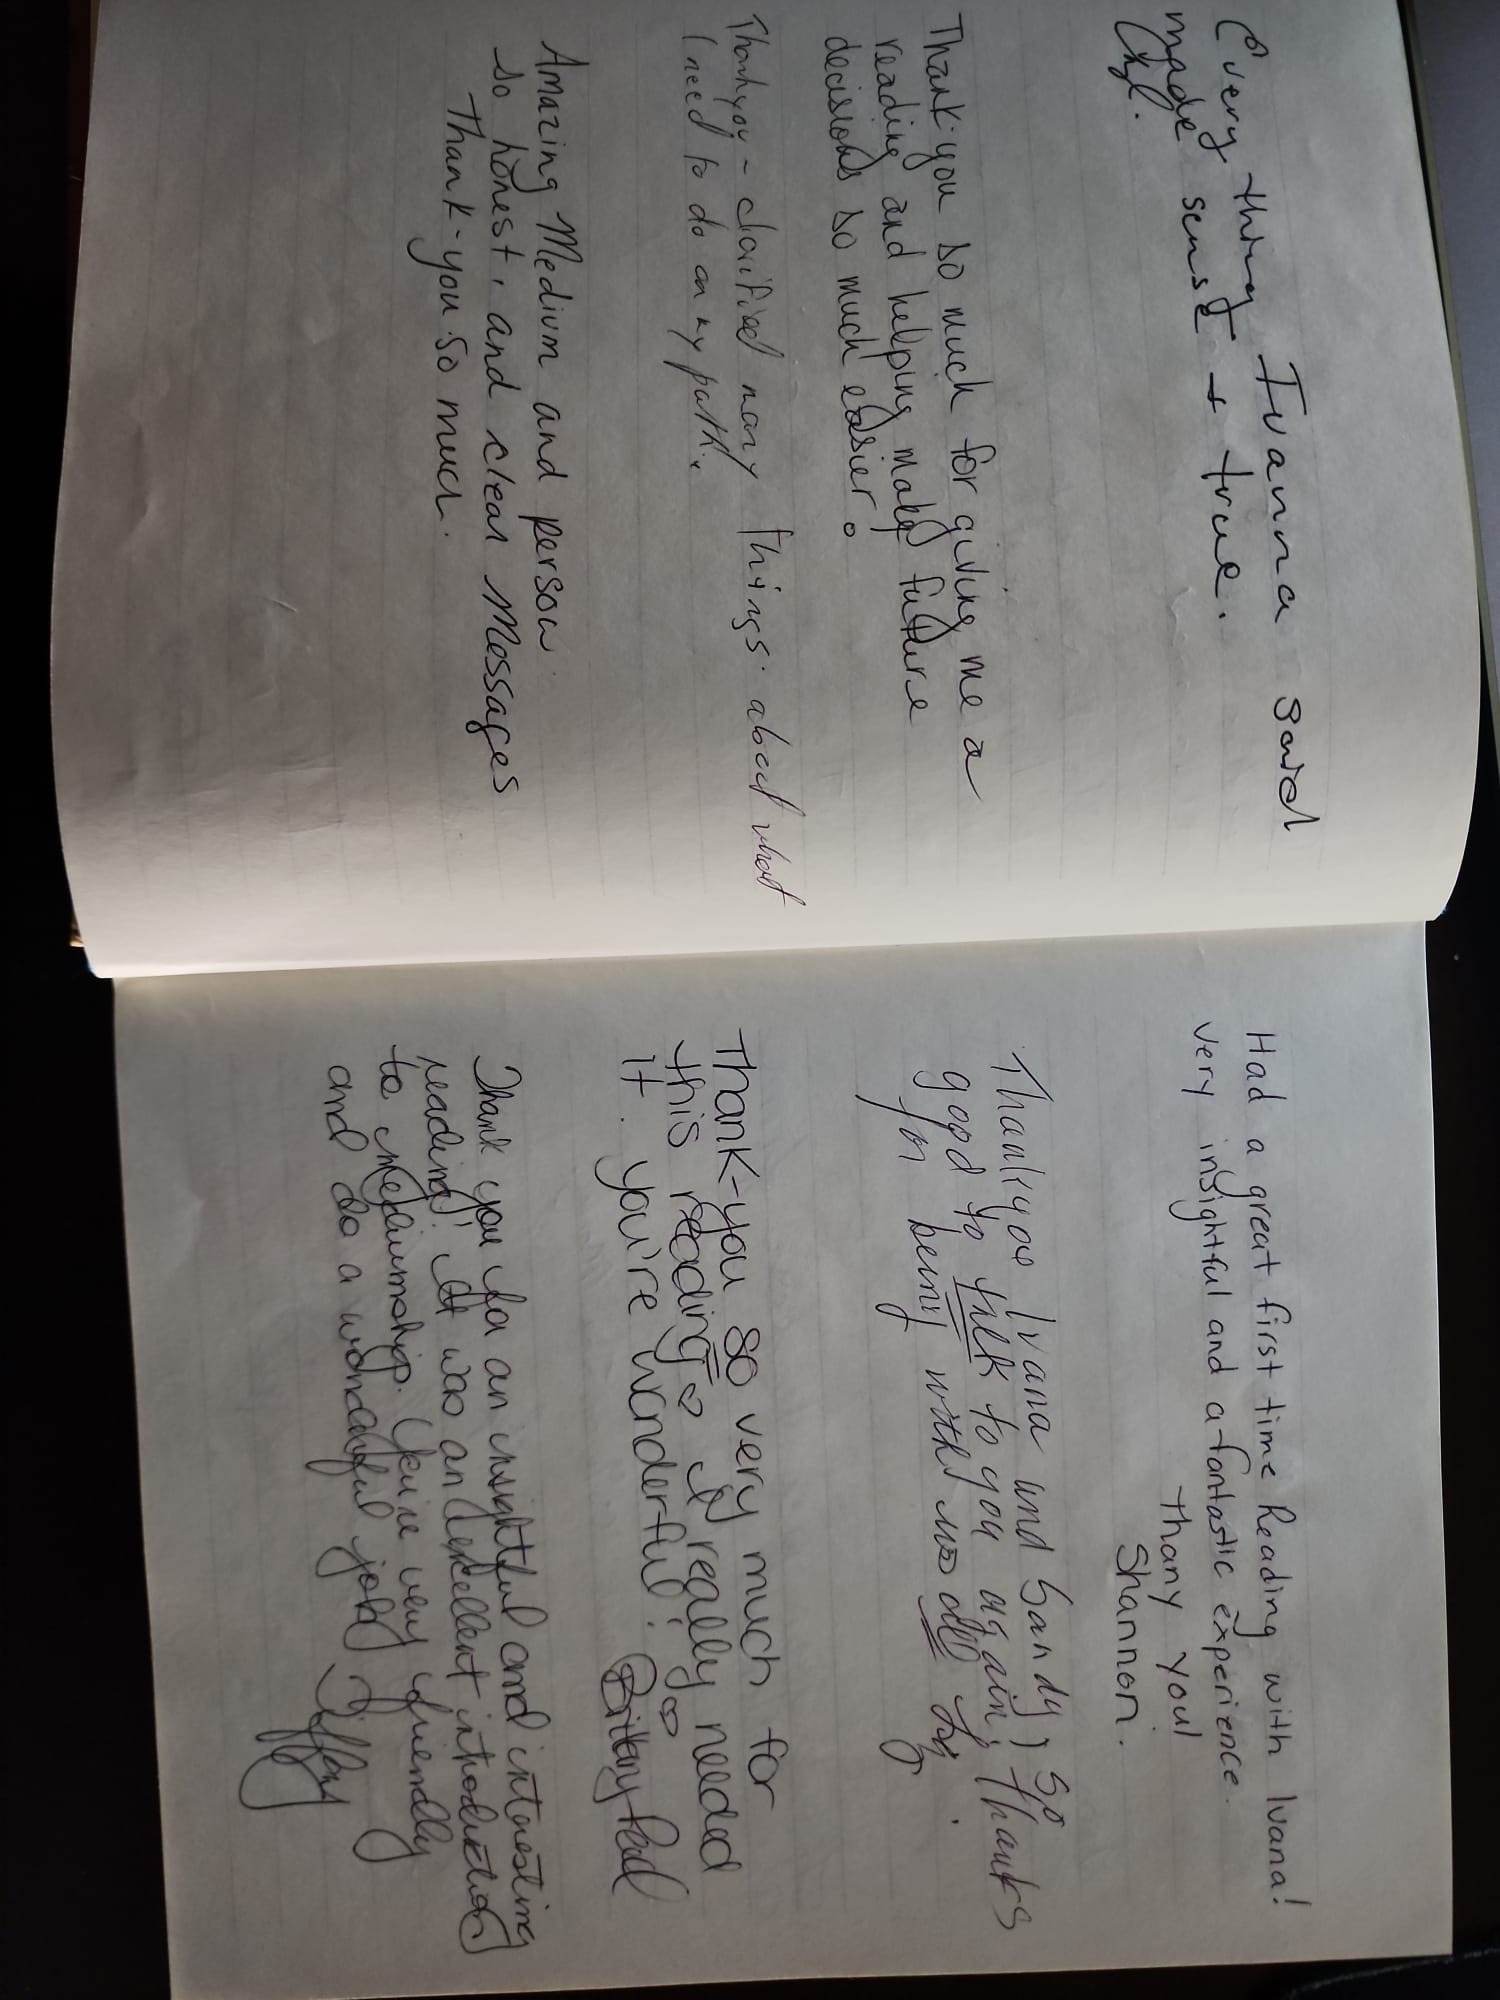 Everything Ivanna said
made sense + true.
Thank-you so much for giving me a
reading and helping make future
decisions so much easier.
Thankyou - clarified many things. about what
I need to do on my path.
Amazing Medium and person.
So honest, and clear Messages
Thank-you so much.
Had a great first time Reading with Ivana!
Very insightful and a fantastic experience.
Thany you!
Shannon.
Thankyou Ivana and Sandy, so
good to talk to you again, Thanks
for being with us all
Thank-you so very much for
this reading ♡ I really needed
it. you're wonderful! ♡ Brittany
Thank you for an insightful and interesting
reading! It was an excellent introduction
to mediumship. You're very friendly
and do a wonderful job! Tiffany